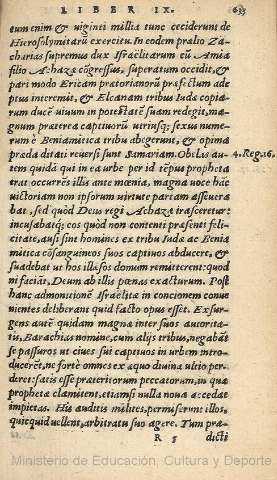 LIBER IX. 633
eum enim & uiginti millia tunc ceciderunt de
Hierosolymitarū exercitu. In eodem prælio Za-
charias supremus dux Israëlitarum cū Amia
filio Achazæ cōgressus, superatum occidit, &
pari modo Ericam prætorianorū præfectum ade
ptus interemit, & Elcanam tribus Iuda copia-
rum ducē uiuum in potestatē suam redegit, ma-
gnum præterea captiuorū utriusq; sexus nume-
rum è Beniamitica tribu abegerunt, & opima
præda ditati reuersi sunt Samariam. Obuius au-
tem quidā qui in ea urbe per id tēpus propheta
erat occurrēs illis ante mœnia, magna uoce hāc
uictoriam non ipsorum uirtute partam asseuera
bat, sed quòd Deus regi Achazæ irasceretur:
incusabatq́; eos quòd non contenti præsenti feli-
citate, ausi sint homines ex tribu Iudæ ac Benia
mitica cōsanguineos suos captiuos abducere, &
suadebat ut hos illæsos domum remitterent: quod
ni faciāt, Deum ab illis pœnas exacturum. Post
hanc admonitionē Israëlitæ in concionem conue
nientes deliberant quid facto opus esset. Exsur-
gens autē quidam magnæ inter suos autorita-
tis, Barachias nomine, cum alijs tribus, negabāt
se passuros ut ciues sui captiuos in urbem intro-
ducerēt, ne fortè omnes ex æquo diuina ultio per
deret: satis esse præteritorum peccatorum, in quæ
prophetæ clamitent, etiamsi nulla noua accedat
impietas. His auditis milites, permiserunt illos,
quicquid uellent, arbitratu suo agere. Tum præ-
R 5 dicti
4. Reg. 16.
Ministerio de Educación, Cultura y Deporte